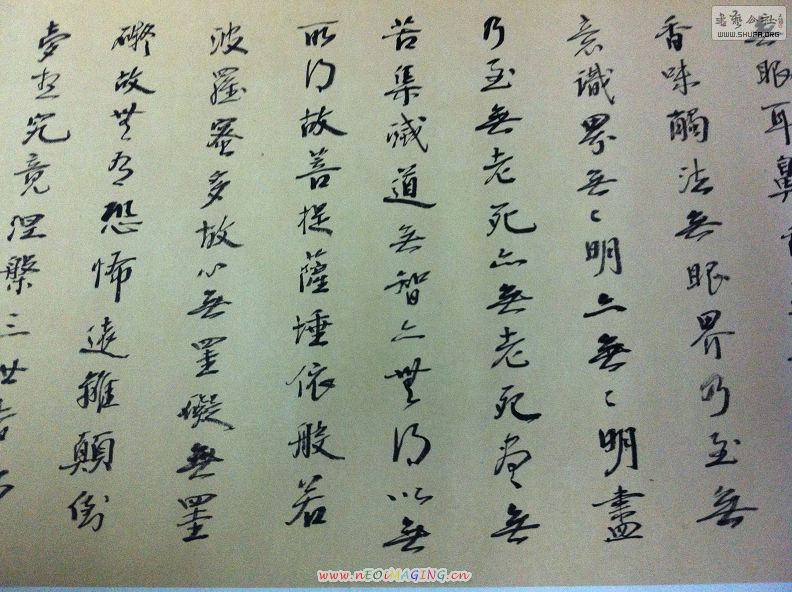 無眼耳鼻
香味觸法無眼界乃至無
意識界無〻明亦無〻明盡
乃至無老死亦無老死盡無
苦集滅道無智亦無得以無
所得故菩提薩埵依般若
波羅蜜多故心無罣礙無罣
礙故無有恐怖遠離顛倒
夢想究竟涅槃三世
書藝公社
WWW.SHUFA.ORG
www.nEOiMAGiNG.cn